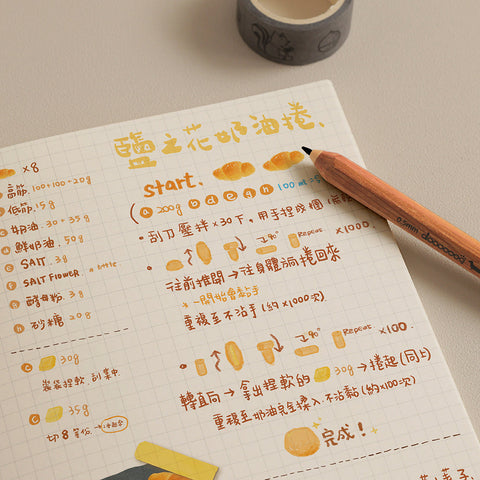 鹽之花奶油捲、
×8
start、
高筋. 100+100+20g
低筋. 15g
奶油. 30+35g
鮮奶油. 50g
SALT. 3g
SALT FLOWER
酵母粉. 3g
砂糖 20g
a 200g b d e g h 100 ml
刮刀壓拌×30下, 用手捏成團
→90° Repeat ×1000.
往前推開→往身體方向捲回來
→一開始會黏手
重複至不沾手 (約×1000次)
→90° Repeat ×100.
轉直向→拿出捏軟的 30g →捲起(同上)
重複至奶油完全揉入.不沾黏(約×100次)
完成!
c 30g
c 35g
切8等份.
0.7mm